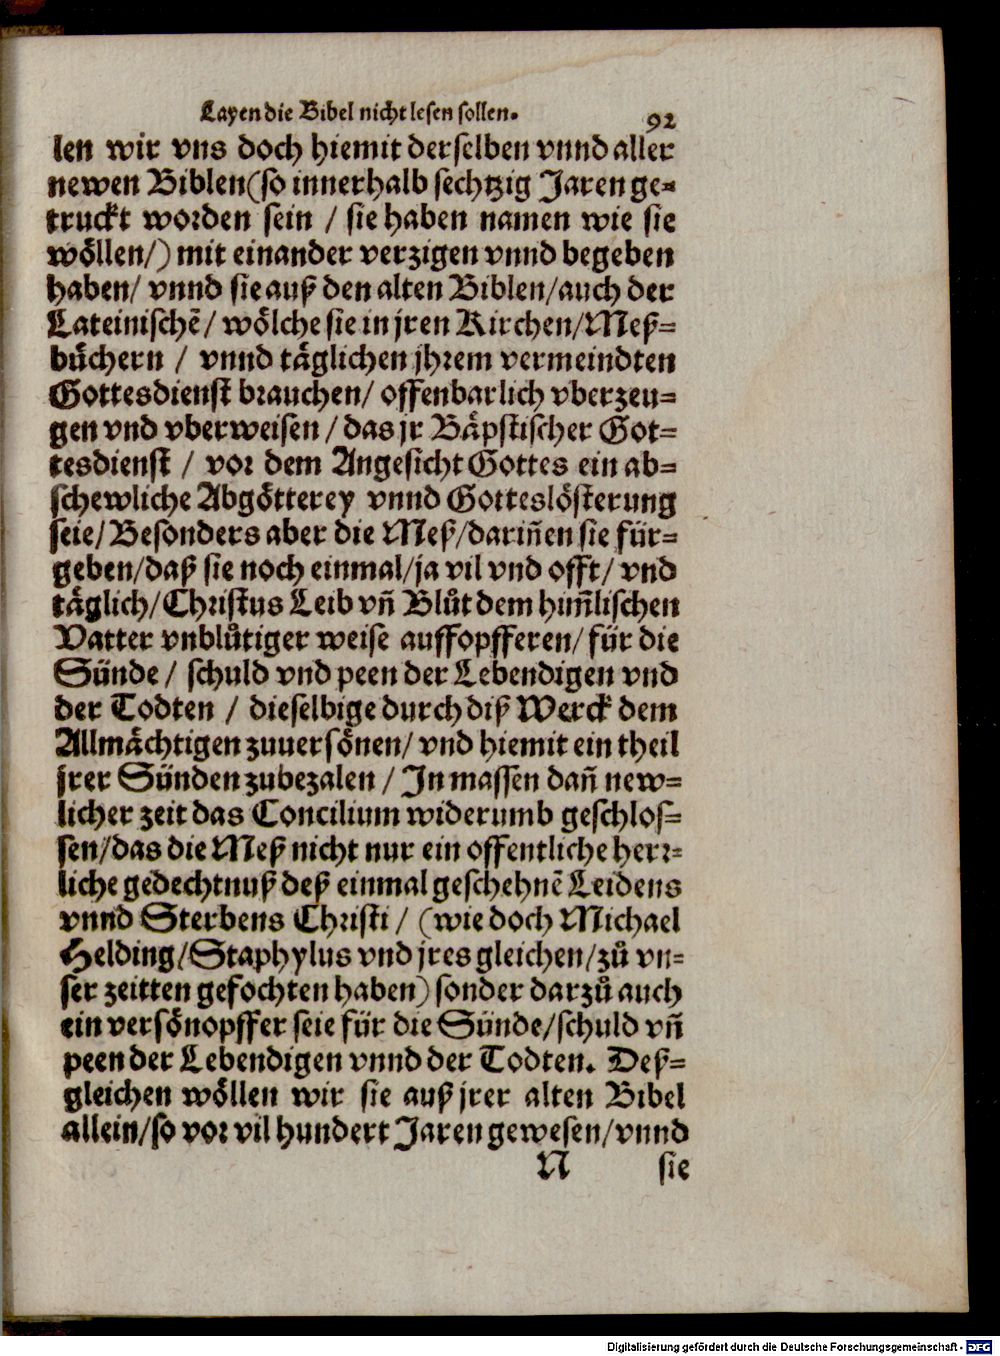 Layen die Bibel nicht lesen sollen.
92
len wir vns doch hiemit derselben vnnd aller
newen Biblen(so innerhalb sechtzig Jaren ge-
truckt worden sein / sie haben namen wie sie
wöllen/) mit einander verzigen vnnd begeben
haben/ vnnd sie auß den alten Biblen/auch der
Lateinischẽ/ wölche sie in jren Kirchen/Meß-
bůchern / vnnd täglichen jhrem vermeindten
Gottesdienst brauchen/ offenbarlich vberzeu-
gen vnd vberweisen / das jr Bäpstischer Got-
tesdienst / vor dem Angesicht Gottes ein ab-
schewliche Abgötterey vnnd Gotteslösterung
seie/ Besonders aber die Meß/dariñen sie für-
geben/daß sie noch einmal/ja vil vnd offt/ vnd
täglich/Christus Leib vñ Blůt dem him̃lischen
Vatter vnblůtiger weise auffopfferen/ für die
Sünde / schuld vnd peen der Lebendigen vnd
der Todten / dieselbige durch diß Werck dem
Allmächtigen zuuersönen/ vnd hiemit ein theil
jrer Sünden zubezalen / In massen dañ new-
licher zeit das Concilium widerumb geschlos-
sen/das die Meß nicht nur ein offentliche herr-
liche gedechtnuß deß einmal geschehnẽ Leidens
vnnd Sterbens Christi / (wie doch Michael
Helding/Staphylus vnd jres gleichen/zů vn-
ser zeitten gefochten haben) sonder darzů auch
ein versönopffer seie für die Sünde/schuld vñ
peen der Lebendigen vnnd der Todten. Deß-
gleichen wöllen wir sie auß jrer alten Bibel
allein/so vor vil hundert Jaren gewesen/vnnd
N sie
Digitalisierung gefördert durch die Deutsche Forschungsgemeinschaft - DFG